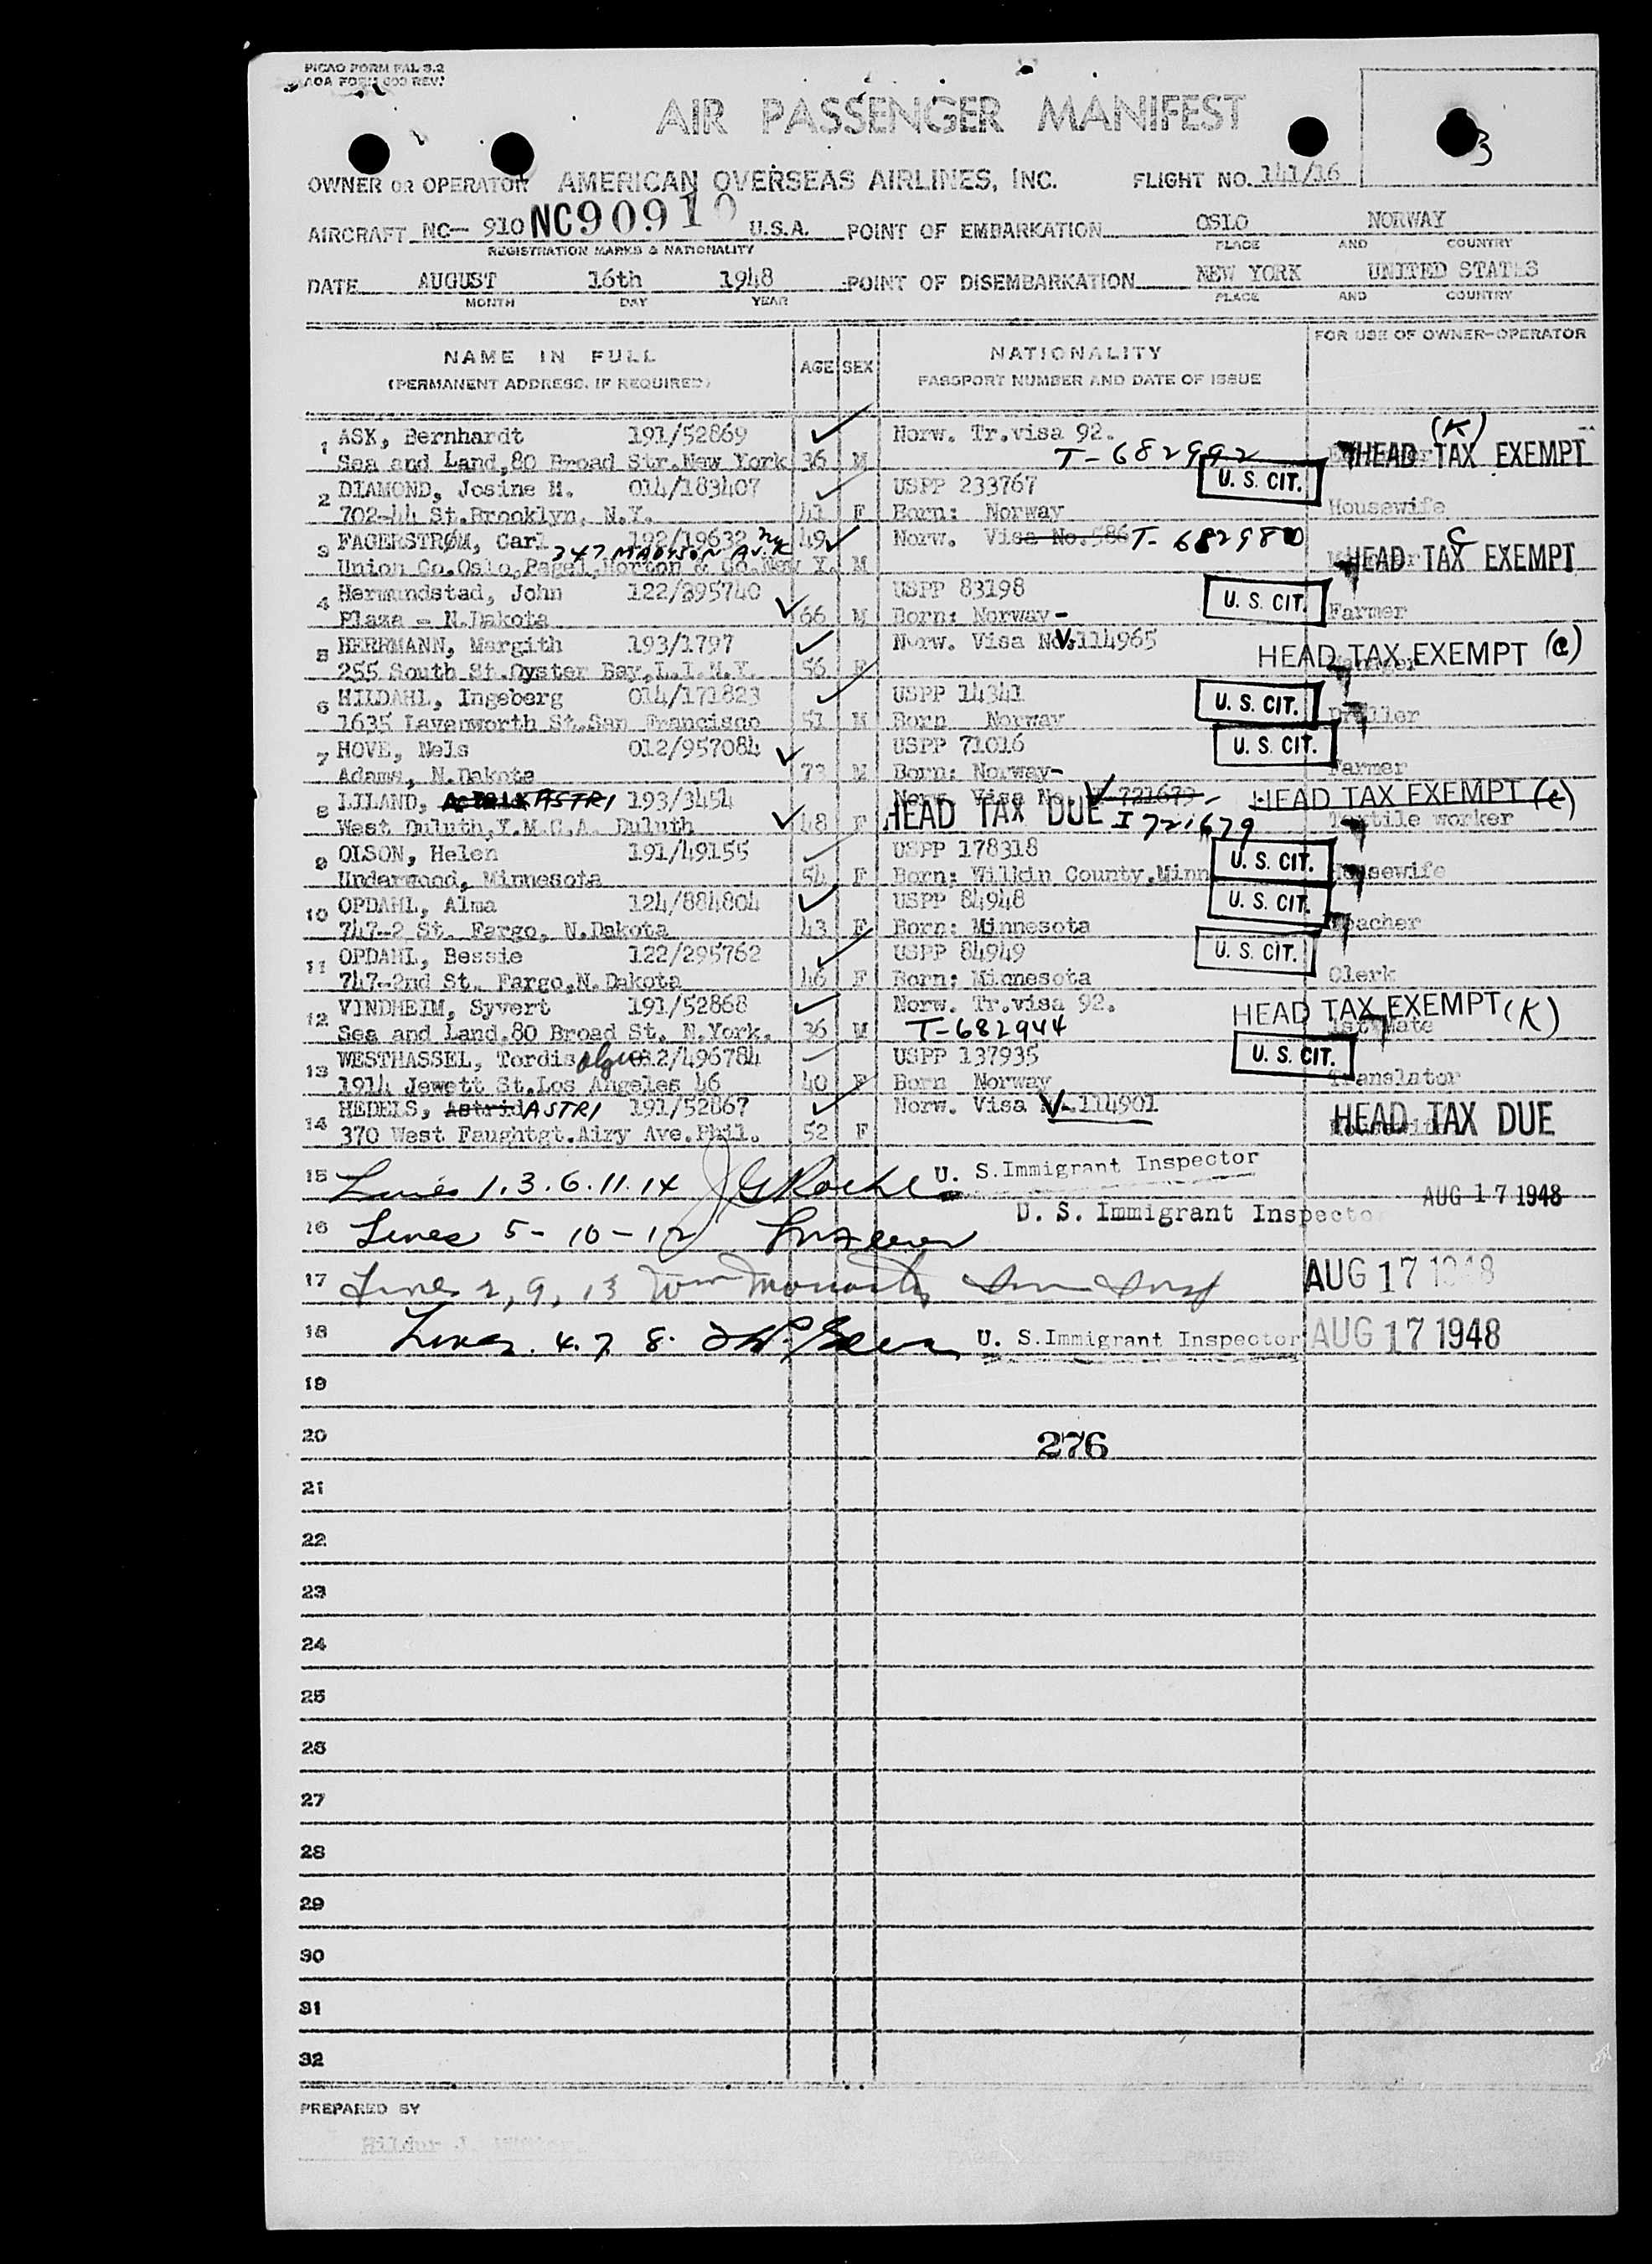 PICAO FORM FAL 3.2
AOA FORM 603 REV.
AIR PASSENGER MANIFEST
3
OWNER OR OPERATOR AMERICAN OVERSEAS AIRLINES, INC. FLIGHT NO. 141/16
AIRCRAFT NC— 910 NC90910 U.S.A. POINT OF EMBARKATION OSLO NORWAY
REGISTRATION MARKS & NATIONALITY PLACE AND COUNTRY
DATE AUGUST 16th 1948 POINT OF DISEMBARKATION NEW YORK UNITED STATES
MONTH DAY YEAR PLACE AND COUNTRY
NAME IN FULL AGE SEX NATIONALITY FOR USE OF OWNER-OPERATOR
(PERMANENT ADDRESS, IF REQUIRED) PASSPORT NUMBER AND DATE OF ISSUE
1 ASK, Bernhardt 191/52869 Norw. Tr.visa 92. (K)
Sea and Land,80 Broad Str.New York 36 M T-682992 HEAD TAX EXEMPT
2 DIAMOND, Josine M. 014/183407 USPP 233767 U. S. CIT.
702-44 St.Brooklyn, N.Y. 41 F Born: Norway Housewife
3 FAGERSTRØM, Carl 192/19632 49 Norw. Visa No.586 T-682980 C
347 MADISON AV. NY
Union Co.Oslo,Pagel,Horton & Co.New Y. M HEAD TAX EXEMPT
4 Hermundstad, John 122/295740 USPP 83198 U. S. CIT.
Plaza - N.Dakota 66 M Born: Norway- Farmer
5 HERRMANN, Margith 193/1797 Norw. Visa No. V.114965
255 South St.Oyster Bay,L.I.N.Y. 56 F HEAD TAX EXEMPT (C)
6 HILDAHL, Ingeberg 014/171823 USPP 14341 U. S. CIT.
1635 Lavenworth St.San Francisco 51 M Born Norway Driller
7 HOVE, Nels 012/957084 USPP 71016 U. S. CIT.
Adams, N.Dakota 73 M Born: Norway- Farmer
8 LILAND, ASTRI 193/3454 Norw. Visa No. V 721679 HEAD TAX EXEMPT (C)
West Duluth,Y.M.C.A. Duluth 48 F HEAD TAX DUE I 721679 Textile worker
9 OLSON, Helen 191/49155 USPP 178318 U. S. CIT.
Underwood, Minnesota 54 F Born: Wilkin County,Minn Housewife
10 OPDAHL, Alma 124/884804 USPP 84948 U. S. CIT.
747-2 St. Fargo, N.Dakota 43 F Born: Minnesota Teacher
11 OPDAHL, Bessie 122/295762 USPP 84949 U. S. CIT.
747-2nd St. Fargo,N.Dakota 46 F Born: Minnesota Clerk
12 VINDHEIM, Syvert 191/52868 Norw. Tr.visa 92. HEAD TAX EXEMPT (K)
Sea and Land,80 Broad St. N.York. 36 M T-682944 1st Mate
13 WESTHASSEL, Tordis Olga 012/496784 USPP 137935 U. S. CIT.
1914 Jewett St.Los Angeles 46 40 F Born Norway Translator
14 HEDELS, Astrid ASTRI 191/52867 Norw. Visa V-114901
370 West Faughtgt.Airy Ave.Phil. 52 F HEAD TAX DUE
15 Lines 1.3.6.11.14 J G Roche U. S. Immigrant Inspector AUG 17 1948
16 Lines 5-10-12 U. S. Immigrant Inspector
17 Lines 2, 9, 13 AUG 17 1948
18 Lines. 4. 7. 8. U. S. Immigrant Inspector AUG 17 1948
19
20 276
21
22
23
24
25
26
27
28
29
30
31
32
PREPARED BY
Hildur J.